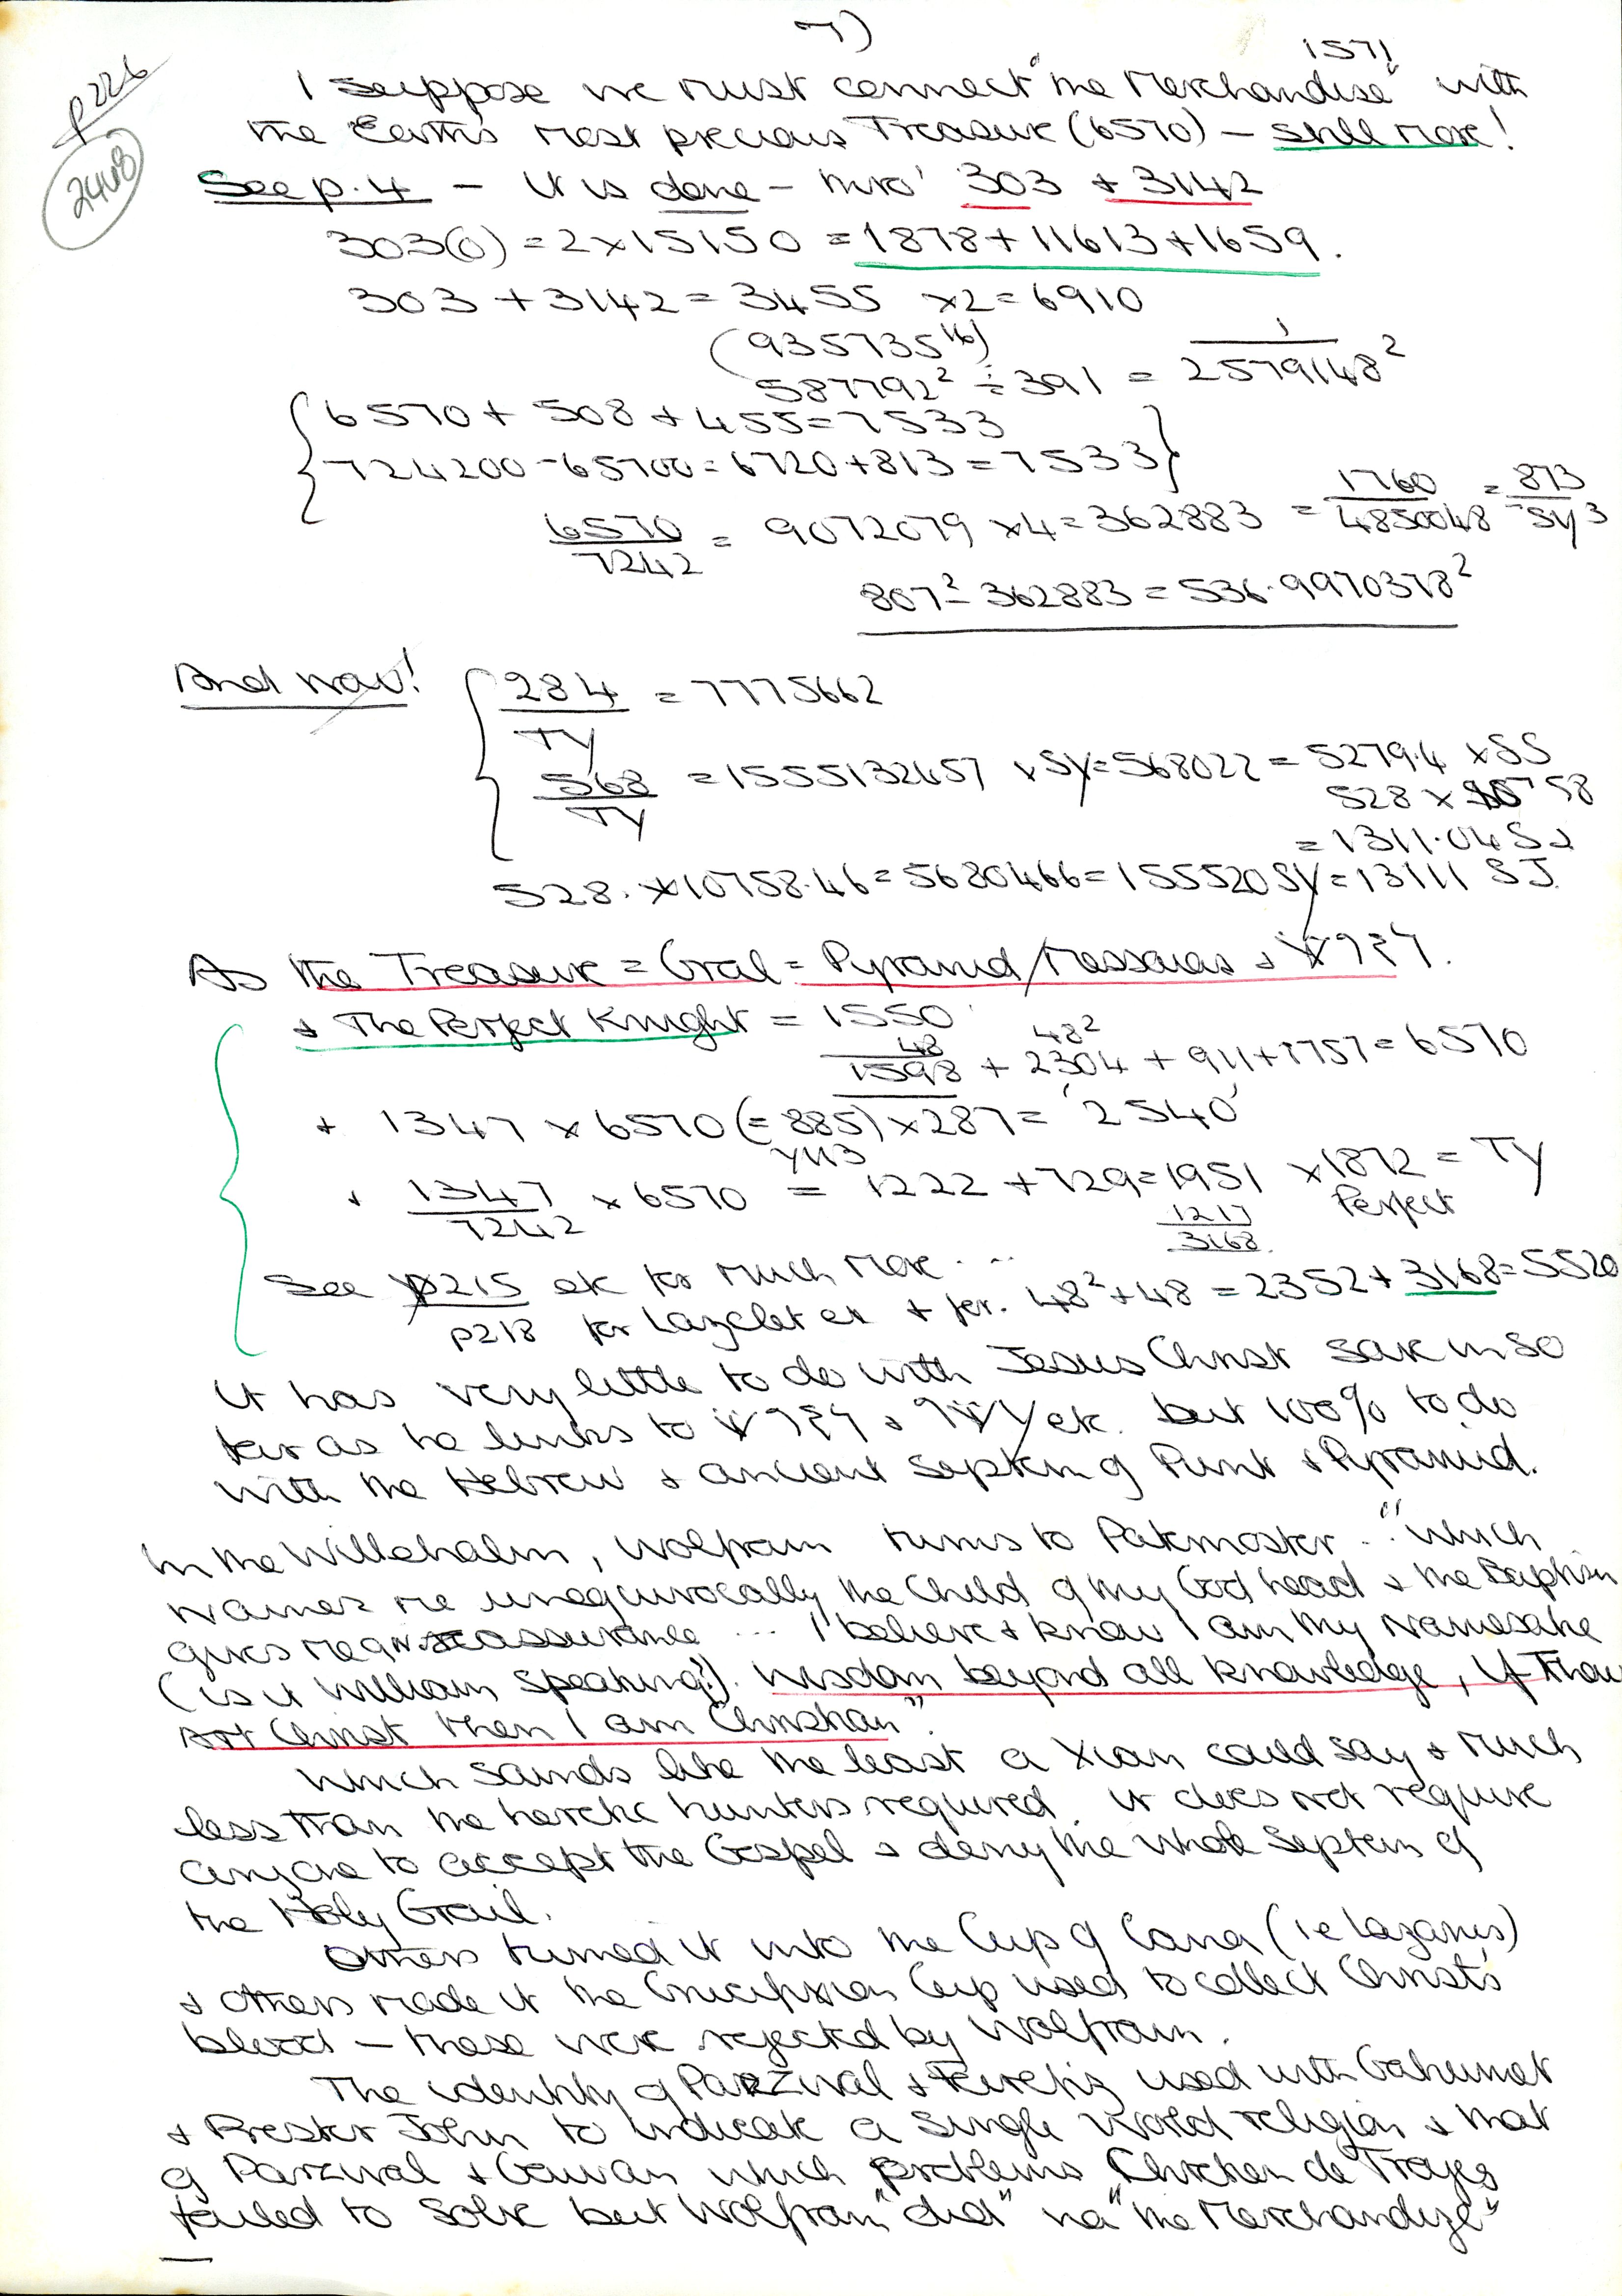 7)
p226
2448
1571
I suppose we must connect "the Merchandise" with
the Earth's most precious Treasure (6570) — still more!
See p.4 — it is done — thro' 303 + 3142
303(0) = 2x15150 = 1878 + 11613 + 1659.
303 + 3142 = 3455 x2 = 6910
(935735¹⁶)
587792² ÷ 391 = 1/2579148²
{6570 + 508 + 455 = 7533
724200 - 65700 = 6720 + 813 = 7533}
6570/7242 = 9072079 x4 = 362883 = 1760/4850048 = 873/SY3
807² - 362883 = 536.9970378²
And now! 284/TY = 7775662
568/TY = 1555132457 x SY = 568022 = 5279.4 x SS
528 x 10758
= 1311.04 SJ
528. x 10758.46 = 5680466 = 155520 SY = 13111 SJ
As the Treasure = Gral = Pyramid/Messaias &
+ The Perfect Knight = 1550
48 48²
1598 + 2304 + 911 + 1757 = 6570
+ 1347 x 6570 (= 885) x 287 = '2540'
YH3
+ 1347/7242 x 6570 = 1222 + 729 = 1951 x 1872 = TY
1217 Perfect
3168
See p215 etc for much more ...
p218 for Lazelet etc + for. 48² + 48 = 2352 + 3168 = 5520
It has very little to do with Jesus Christ save in so
far as he links to & etc. but 100% to do
with the Hebrew & ancient Septem of Punt & Pyramid.
In the Willehalm, Wolfram turns to Paternoster .. "which
names me unequivocally the Child of my Godhead & the Baptism
gives me an assurance ... I believe & know I am my Namesake
(is it William speaking?). Wisdom beyond all knowledge, If Thou
Art Christ then I am Christian".
Which sounds like the least a Xian could say & much
less than the heretic hunters required. It does not require
anyone to accept the Gospel & deny the whole Septem of
the Holy Grail.
Others turned it into the Cup of Cana (ie Lazarus)
& others made it the Crucifixion Cup used to collect Christ's
blood — these were rejected by Wolfram.
The identity of Parzival & Feirefiz used with Gahumet
& Prester John to indicate a single world religion & that
of Parzival & Gawan which problems Chretien de Troyes
failed to solve but Wolfram "did" via "the Merchandize"